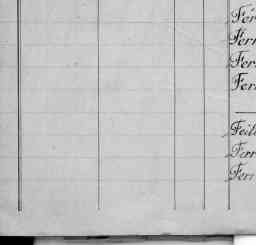 Fer
Ferr
Fer
Fer
Feil
Ferr
Ferr